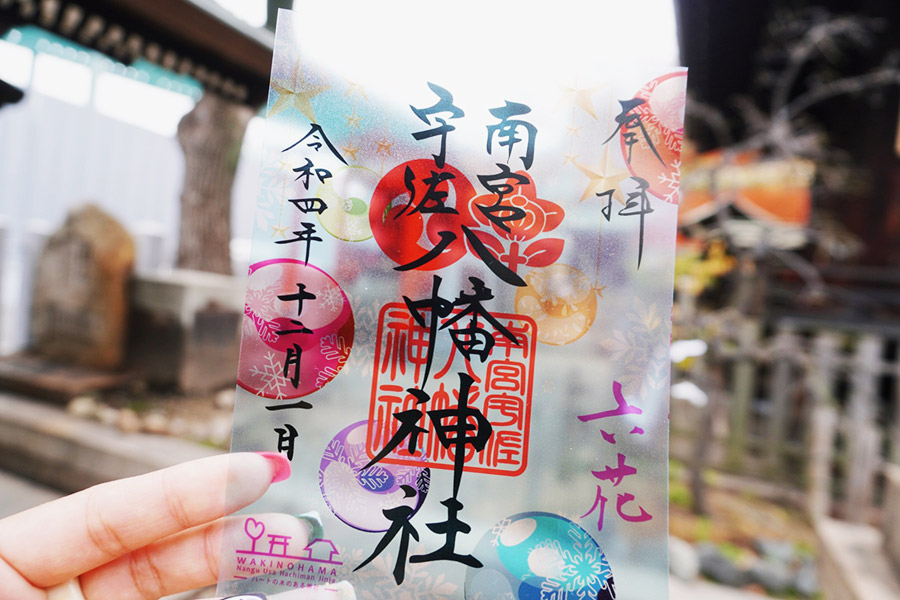 奉拝
六花
南宮
宇佐八幡神社
南宮宇佐
八幡
神社
令和四年十二月一日
WAKINOHAMA
Nangu Usa Hachiman Jinja
ハートの木のある神社